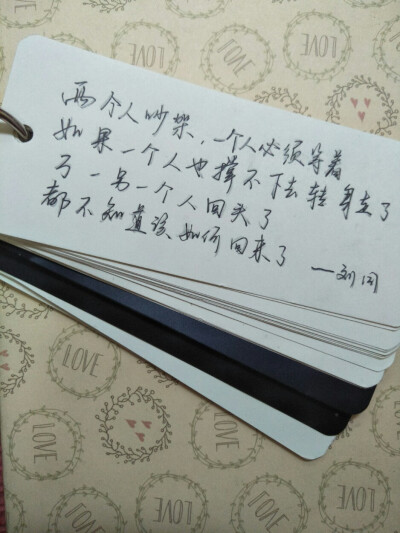 两个人吵架，一个人必须等着
如果一个人也撑不下去转身走了
万一另一个人回头了
都不知道该如何回来了 ——刘同
LOVE
LOVE
LOVE
LOVE
LOVE
LOVE
LOVE
LOVE